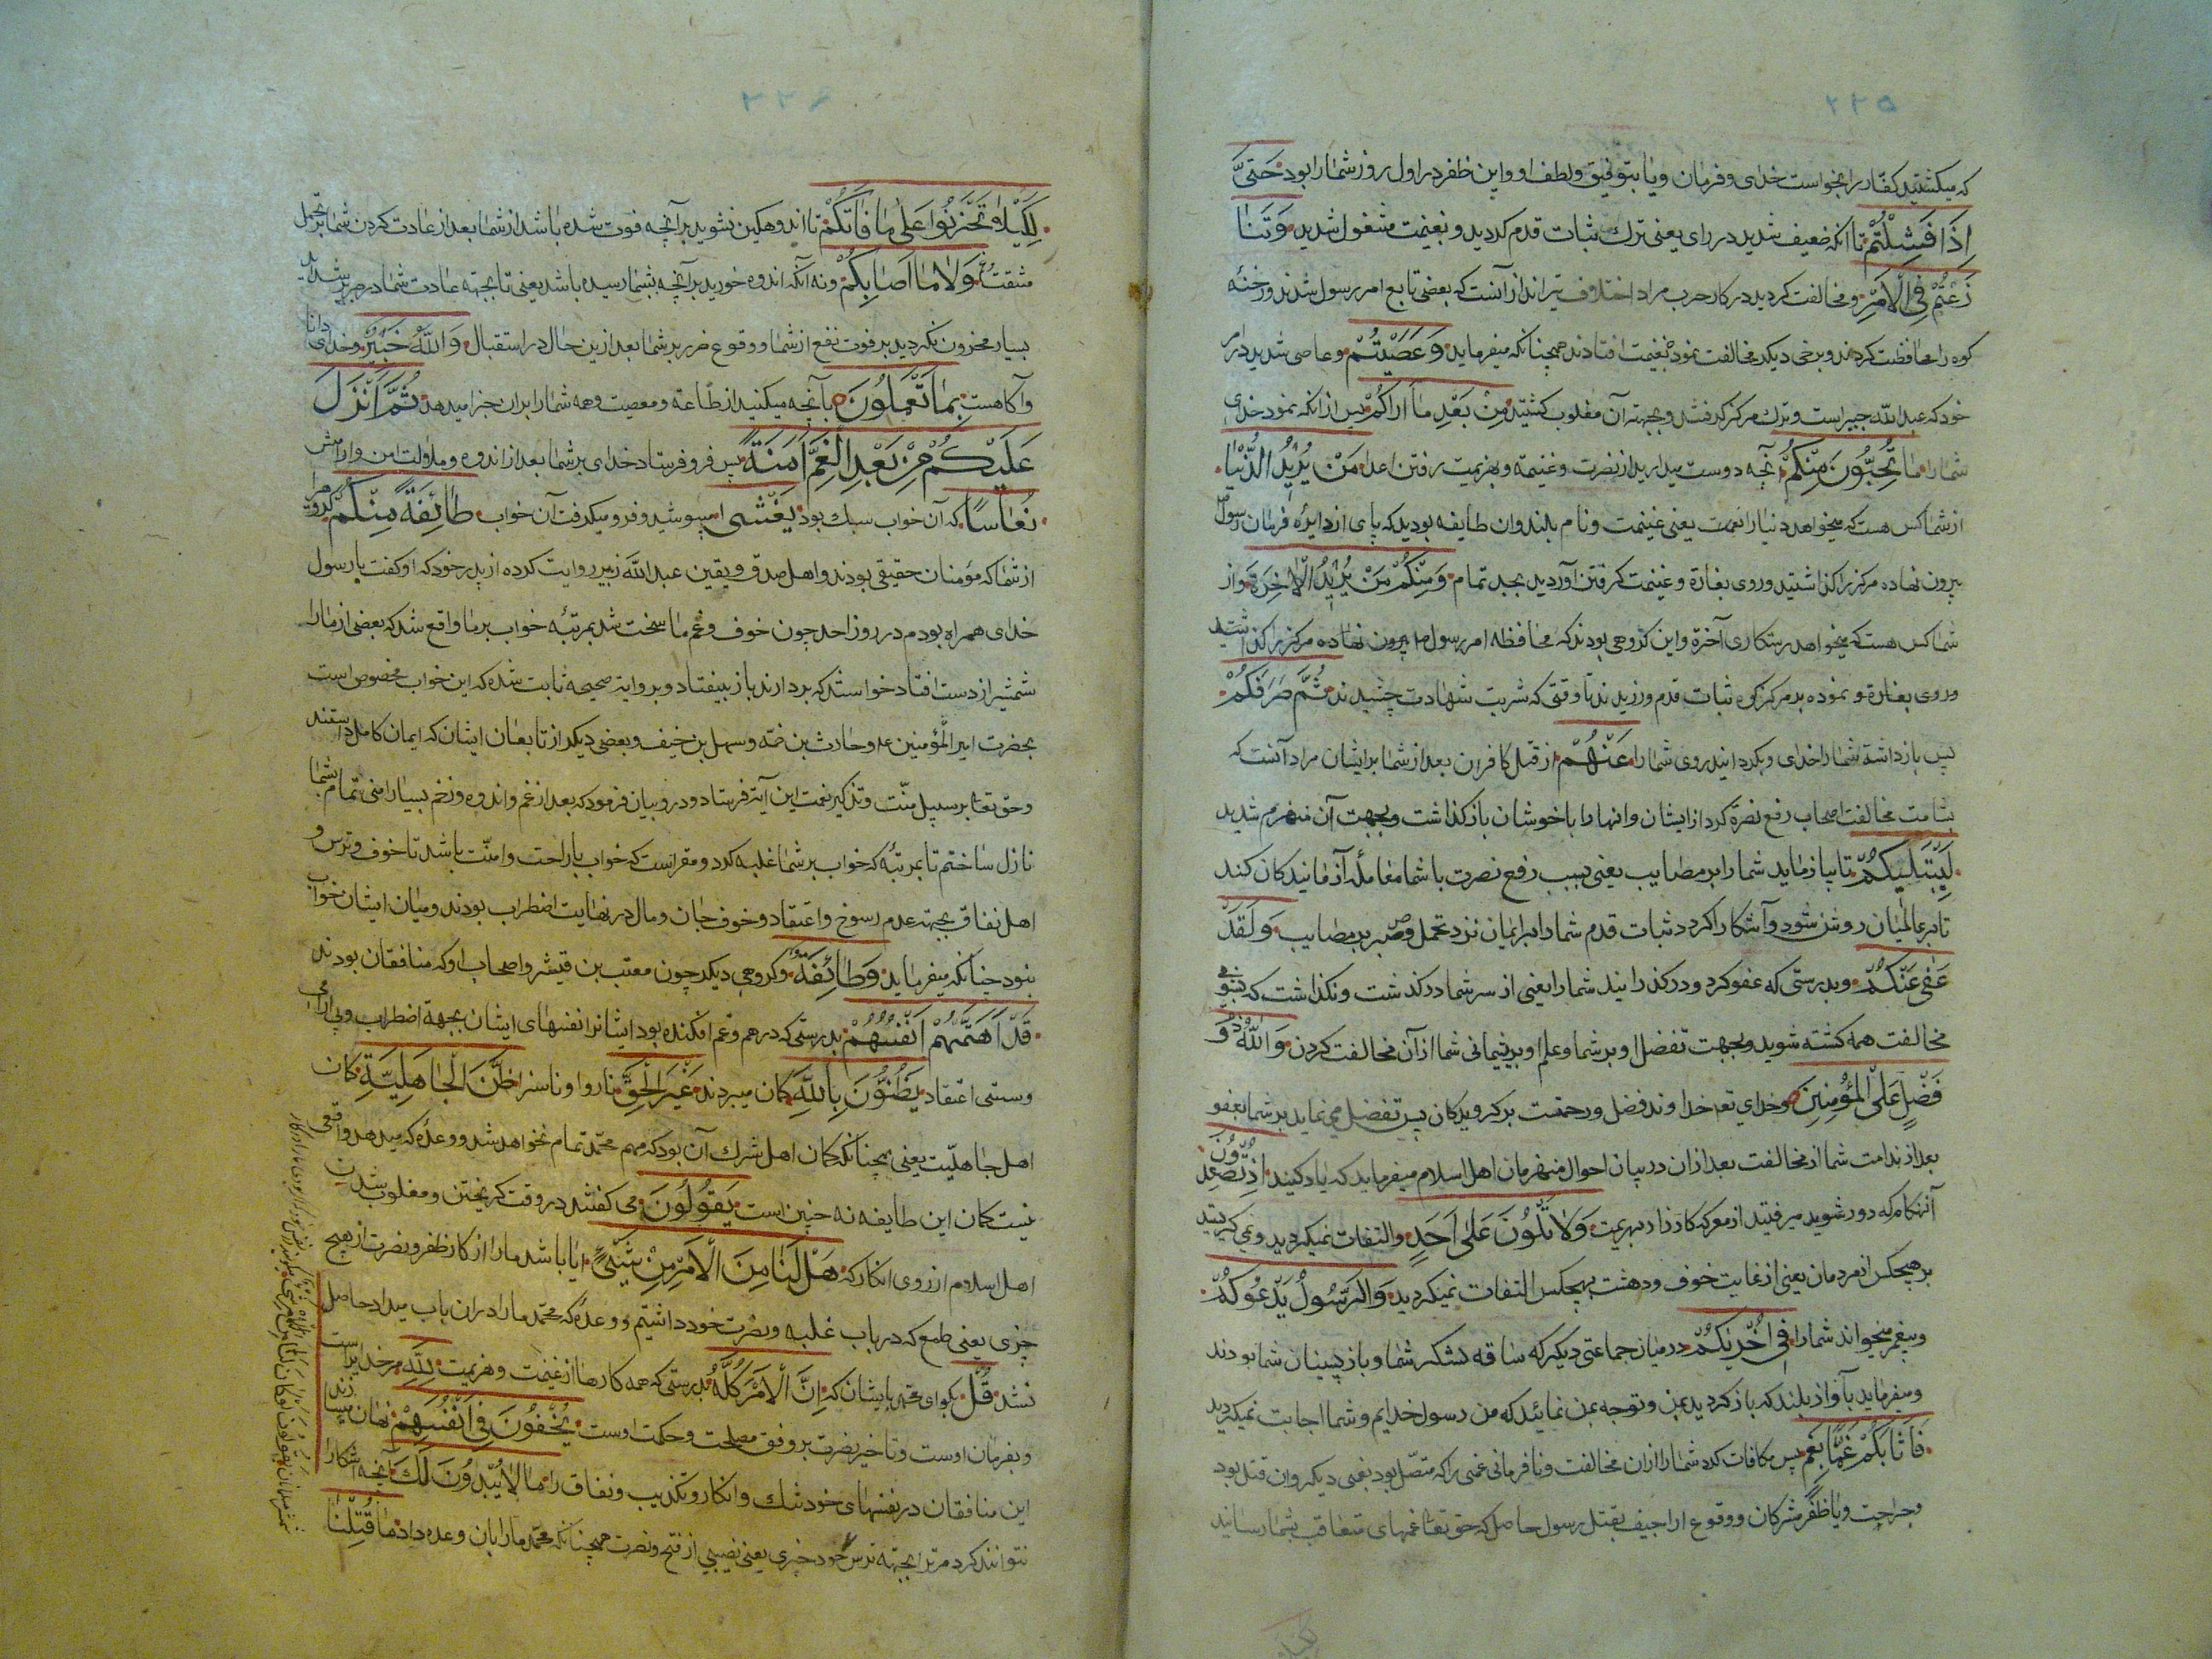 ٢٢٥
که میکشتید کفار را بخواست خدای و فرمان و یا بتوفیق و لطف او و این ظفر در اول روز شما را بود حَتّیَ
اِذَا فَشِلْتُمْ تا انکه ضعیف شدید در رای یعنی ترک ثبات قدم کردید و بغنیمت مشغول شدید وَتَنَا
زَعْتُمْ فِی الْاَمْرِ و مخالفت کردید در کار حرب مراد اختلاف تیر اندازانست که بعضی تابع امر رسول شدند و رخنه
کوه را محافظت کردند و برخی دیکر مخالفت نموده بغنیمت افتادند همچنانکه میفرماید وَ عَصَیْتُمْ و عاصی شدید در امر
خود که عبد الله جبیر است و ترک مرکز کرفتید و بجهة آن مغلوب کشتید مِنْ بَعْدِ مَا اَرَاکُمْ پس از انکه نمود خدای
شما را مَا تُحِبُّونَ مِنْکُمْ آنچه دوست میدارید از نصرت و غنیمة و بهزیمت رفتن اعدا مَنْ یُرِیدُ الدُّنْیَا
از شما کس هست که میخواهد دنیا را نعمت یعنی غنیمت و نام بلند و ان طایفه بودید که پای از دایره فرمان رسول
بیرون نهاده مرکز را کذاشتید و روی بغارة و غنیمت کرفتن آوردید بجد تمام وَمِنْکُمْ مَنْ یُرِیدُ الْاٰخِرَةَ و از
شما کس هست که میخواهد رستکاری آخرة و این کروهی بودند که محافظه امر رسول بیرون نهاده مرکز را کذاشتید
و روی بغارة و نموده بد مرکز کوه ثبات قدم ورزیدند تا وقتی که شربت شهادت چشیدند ثُمَّ صَرَفَکُمْ
پس بازداشت شما را خدای و بکردانید روی شما را عَنْهُمْ از قبل کافران بعد از شما بر ایشان مراد آنست که
بشامت مخالفت اصحاب رفع نصرة کرد از ایشان و انها را با خوشان باز کذاشت و بجهت آن منهزم شدید
لِیَبْتَلِیَکُمْ تا بیازماید شما را بر مصایب یعنی بسبب رفع نصرت با شما معامله آزمانید کان کند
تا بر عالمیان روشن شود و آشکارا کردد ثبات قدم شما را بر ایمان نزد تحمل و صبر بر مصایب وَ لَقَدْ
عَفٰی عَنْکُمْ و بدرستی که عفو کرد و در کذرانید شما را یعنی از سر شما درکذشت و نکذاشت که بشومی
مخالفت همه کشته شوید و بجهت تفضل او بر شما و علم او بر پشیمانی شما از آن مخالفت کردن وَاللّٰهُ ذُو
فَضْلٍ عَلَی الْمُؤْمِنِینَ و خدای تع خداوند فضل و رحمتست بر کرویدکان پس تفضل می نماید بر شما بعفو
بعد از ندامت شما از مخالفت بعد ازان در بیان احوال منهزمان اهل اسلام میفرماید که یاد کنید اِذْ تُصْعِدُونَ
آنهنکام که دور شوید میرفتید از معرکه کارزار بهزیمت وَلَا تَلْوُنَ عَلٰی اَحَدٍ و التفات نمیکردید و نمی نکریستید
بر هیچکس از مردمان یعنی از غایت خوف و دهشت بهیچکس التفات نمیکردید وَالرَّسُولُ یَدْعُوکُمْ
و پیغمبر میخواند شما را فِی اُخْرٰیکُمْ در میان جماعتی دیکر که ساقه لشکر شما و باز پسینان شما بودند
و میفرماید بآواز بلند که باز کردید بمن و توجه بمن نمائید که من رسول خدایم و شما اجابت نمیکردید
فَاَثَابَکُمْ غَمًّا بِغَمٍّ پس مکافات کرد شما را ازان مخالفت و نافرمانی غمی را که متصل بود بغمی دیکر و ان قتل بود
و جراحت و یا ظفر مشرکان و وقوع اراجیف بقتل رسول حاصل که حق تعا غمهای متعاقب بشما رسانید
٢٢٦
لِکَیْلَا تَحْزَنُوا عَلٰی مَا فَاتَکُمْ تا اندوهکین نشوید بر آنچه فوت شده باشد از شما بعد از عادت کردن شما بر تحمل
مشقت وَلَا مَا اَصَابَکُمْ و نه آنکه اندوه خورید بر آنچه بشما رسیده باشد یعنی تا بجهة عادت شما در صبر بر شداید
بسیار محزون نکردید بر فوت نفع از شما و وقوع ضرر بر شما بعد ازین حال در استقبال وَاللّٰهُ خَبِیرٌ و خدای دانا
و آکاهست بِمَا تَعْمَلُونَ بآنچه میکنید از طاعة و معصیت و همه شما را بران جزا میدهد ثُمَّ اَنْزَلَ
عَلَیْکُمْ مِنْ بَعْدِ الْغَمِّ اَمَنَةً پس فرو فرستاد خدای بر شما بعد از اندوه و ملالت امن و ارامش
نُعَاسًا که آن خواب سبک بود یَغْشٰی میپوشید و فرو میکرفت آن خواب طَائِفَةً مِنْکُمْ کروهی را
از شما که مؤمنان حقیقی بودند و اهل صدق و یقین عبد الله زبیر روایت کرده از پدر خود که او کفت با رسول
خدای همراه بودم در روز احد چون خوف و غم ما سخت شد بمرتبه خواب بر ما واقع شد که بعضی از ما را
شمشیر از دست افتاد خواستند که بردارند باز بیفتاد و بروایة صحیحه ثابت شده که این خواب مخصوص است
بحضرت امیر المؤمنین ع و حارث بن صمه و سهل بن حنیف و بعضی دیکر از تابعان ایشان که ایمان کامل داشتند
و حق تعا بر سبیل منّت و تذکیر نعمت این آیة فرستاد و در و بیان فرمود که بعد از غم و اندوه و زخم بسیار امنی تمام بشما
نازل ساختم تا بمرتبه که خواب بر شما غلبه کرد و مقرر است که خواب با راحت و امنّت باشد تا خوف و ترس و
اهل نفاق بجهة عدم رسوخ و اعتقاد و خوف جان و مال در نهایت اضطراب بودند و میان ایشان خواب
نبود چنانکه میفرماید وَطَائِفَةٌ و کروهی دیکر چون معتب بن قیشر و اصحاب او که منافقان بودند
قَدْ اَهَمَّتْهُمْ اَنْفُسُهُمْ بدرستی که در هم و غم افکنده بود ایشانرا نفسهای ایشان بجهة اضطراب و بی ارامی
و سستی اعتقاد یَظُنُّونَ بِاللّٰهِ کمان میبردند غَیْرَ الْحَقِّ ناروا و ناسزا ظَنَّ الْجَاهِلِیَّةِ کمان
اهل جاهلیّت یعنی همچنانکه کمان اهل شرک آن بود که مهم محمّد تمام نخواهد شد و وعده که میدهد واقعی
نیست کمان این طایفه نه چنین است یَقُولُونَ می کفتند در وقت کریختن و مغلوب شدن
اهل اسلام از روی انکار که هَلْ لَنَا مِنَ الْاَمْرِ مِنْ شَیْءٍ ایا باشد ما را از کار ظفر و نصرت از هیچ
چیزی یعنی طمع که در باب غلبه و نصرت خود داشتیم و وعده که محمّد ما را دران باب میداد حاصل
نشد قُلْ بکوای محمّد بایشان که اِنَّ الْاَمْرَ کُلَّهُ بدرستی که همه کارها از غنیمت و هزیمت لِلّٰهِ مر خدایراست
و بفرمان اوست و تاخیر نصرت بر وفق مصلحت و حکمت اوست یُخْفُونَ فِی اَنْفُسِهِمْ نهان میسازند
این منافقان در نفسهای خود شک و انکار و تکذیب و نفاق را مَا لَا یُبْدُونَ لَکَ آنچه اشکارا
نتوانند کرد مر ترا بجهة ترس خود چیزی یعنی نصیبی از فتح و نصرت همچنانکه محمّد ما را بان وعده داد مَا قُتِلْنَا